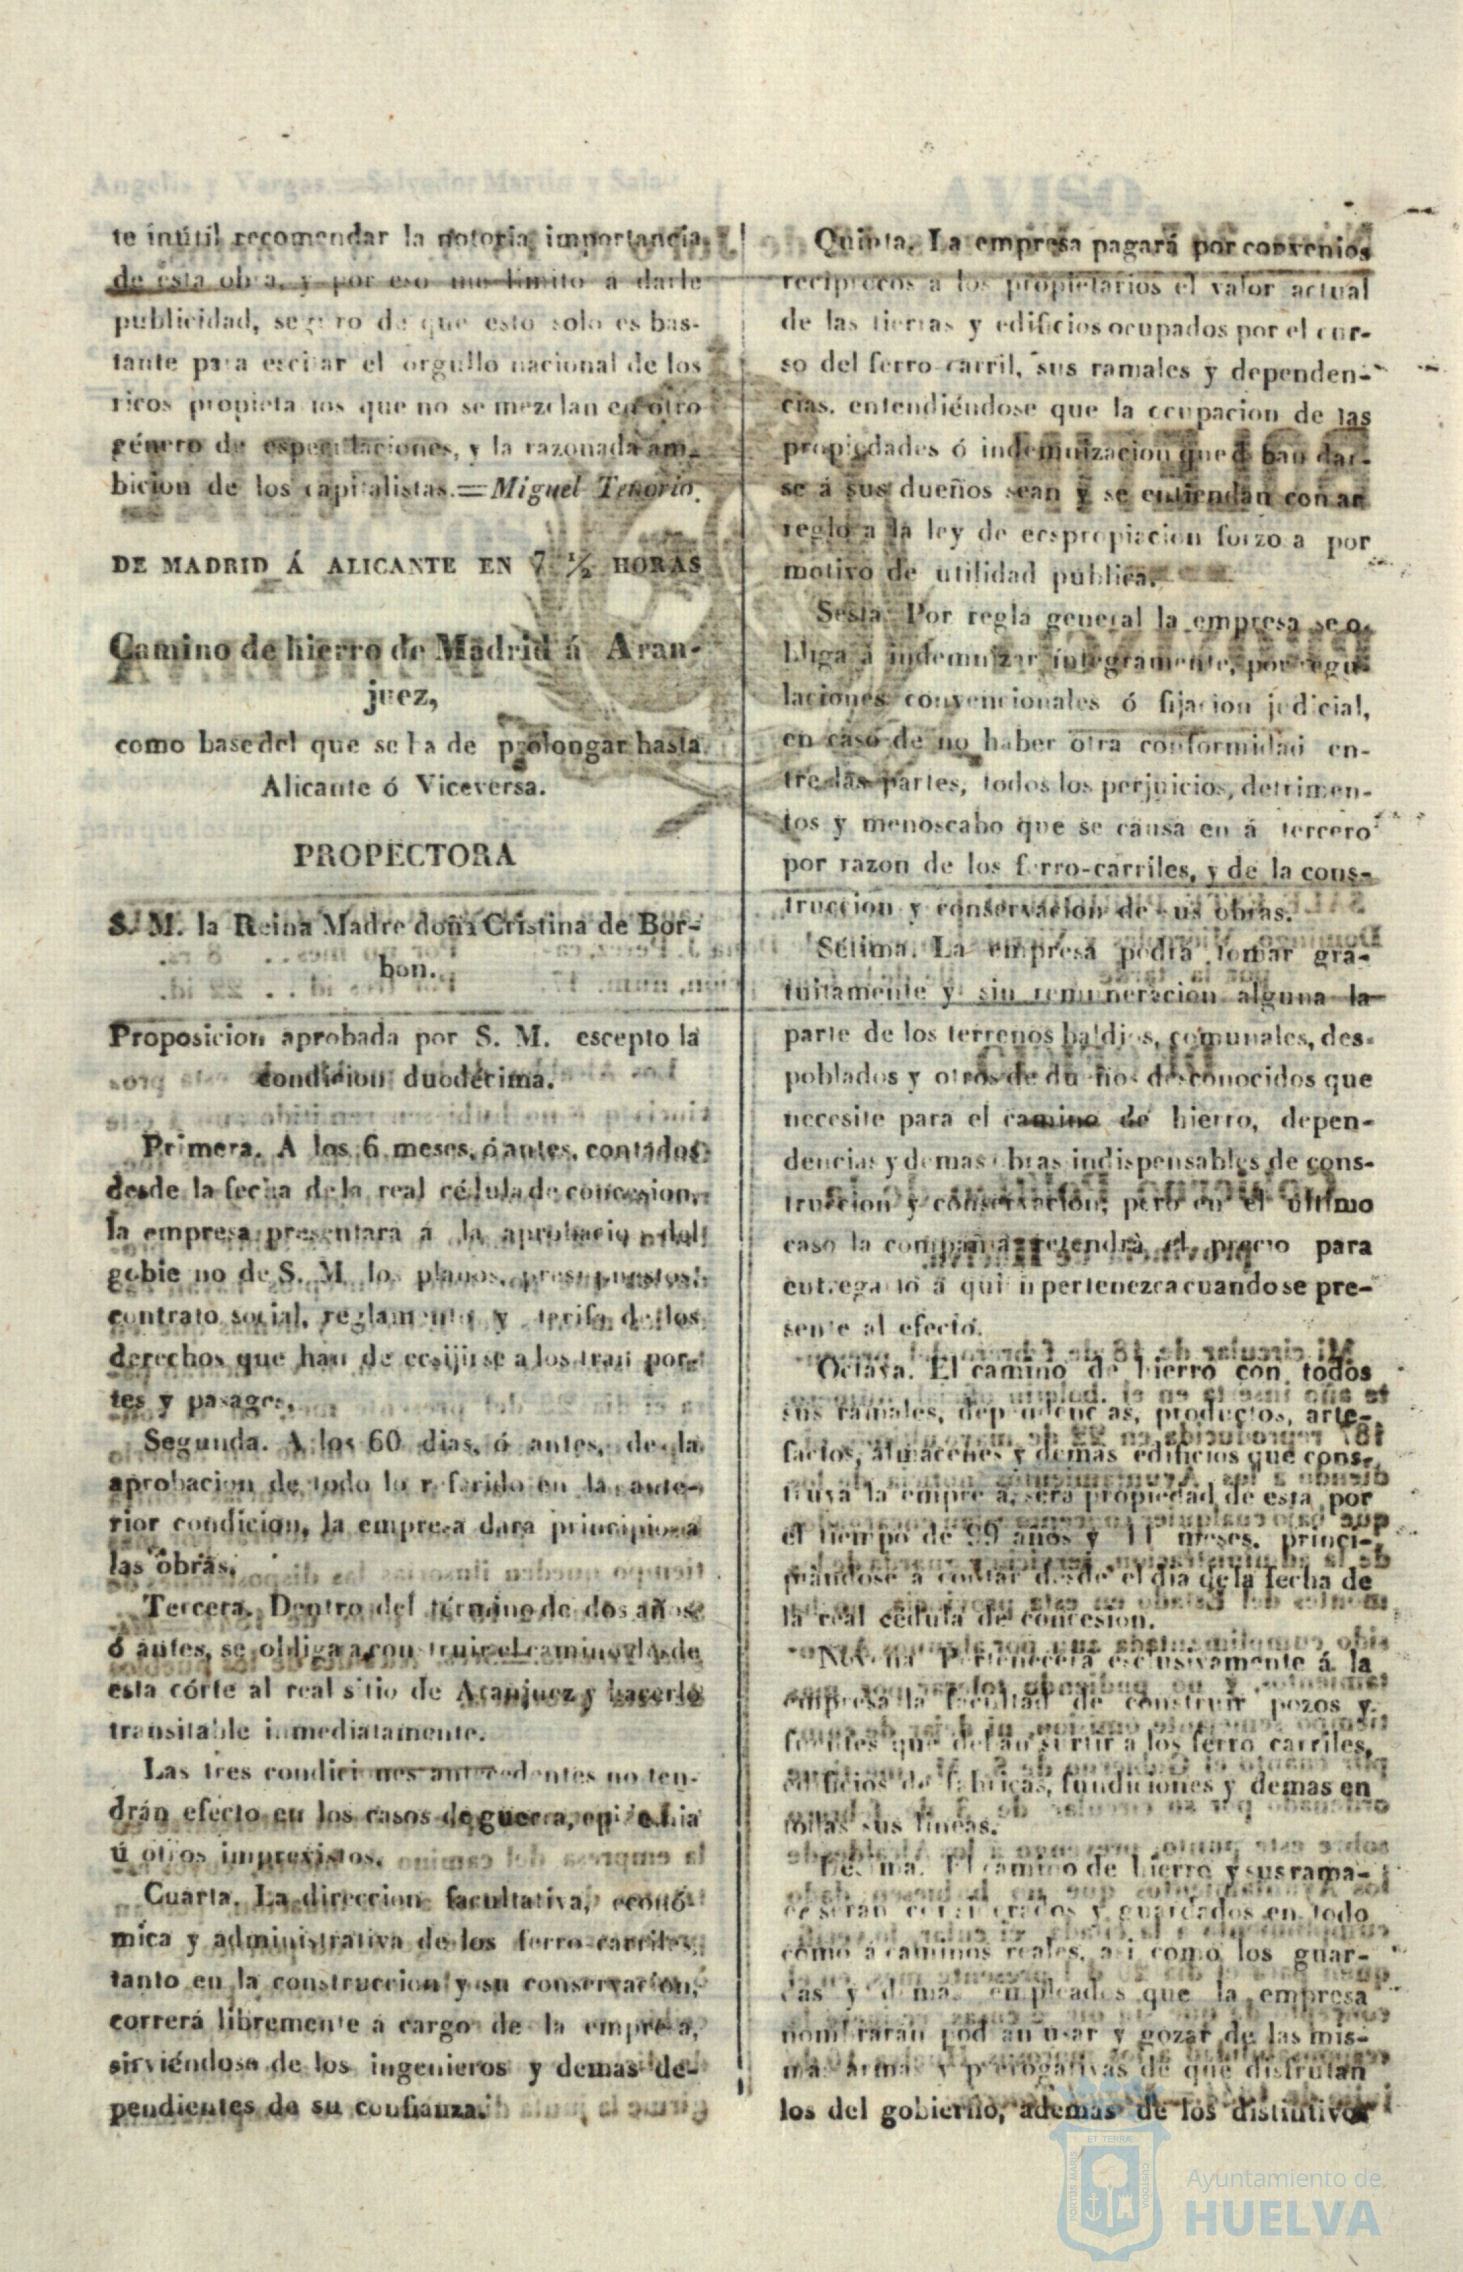 te inútil recomendar la notoria importancia
de esta obra, y por eso me limito a darle
publicidad, seguro de que esto solo es bas-
tante para escitar el orgullo nacional de los
ricos propietarios que no se mezclan en otro
género de especulaciones, y la razonada am-
bicion de los capitalistas.=Miguel Tenorio.
DE MADRID Á ALICANTE EN 7 ½ HORAS
Camino de hierro de Madrid á Aran-
juez,
como base del que se ha de prolongar hasta
Alicante ó Viceversa.
PROPECTORA
S. M. la Reina Madre doña Cristina de Bor-
bon.
Proposicion aprobada por S. M. escepto la
condicion duodécima.
Primera. A los 6 meses, ó antes, contados
desde la fecha de la real cédula de concesion,
la empresa presentara á la aprobacion del
gobierno de S. M. los planos, presupuestos,
contrato social, reglamento y tarifa de los
derechos que han de ecsijirse a los tran por-
tes y pasages.
Segunda. A los 60 dias, ó antes, de la
aprobacion de todo lo referido en la ante-
rior condicion, la empresa dara principio a
las obras.
Tercera. Dentro del término de dos años
ó antes, se obliga a construir el camino desde
esta córte al real sitio de Aranjuez y hacerlo
transitable inmediatamente.
Las tres condiciones antecedentes no ten-
drán efecto en los casos de guerra, epidemia
ú otros imprevistos.
Cuarta. La direccion facultativa, econó-
mica y administrativa de los ferro-carriles,
tanto en la construccion y su conservacion,
correrá libremente á cargo de la empresa,
sirviéndose de los ingenieros y demas de-
pendientes de su confianza.
Quinta. La empresa pagará por convenios
reciprocos a los propietarios el valor actual
de las tierras y edificios ocupados por el cur-
so del ferro-carril, sus ramales y dependen-
cias, entendiéndose que la ocupacion de las
propiedades ó indemnizacion que han dar-
se á sus dueños sean y se entiendan con ar
reglo a la ley de ecspropiacion forzosa por
motivo de utilidad pública.
Sesta. Por regla general la empresa se o-
bliga á indemnizar integramente, por regu-
laciones convencionales ó fijacion judicial,
en caso de no haber otra conformidad en-
tre las partes, todos los perjuicios, detrimen-
tos y menoscabo que se causa en á tercero
por razon de los ferro-carriles, y de la cons-
truccion y conservacion de sus obras.
Sétima. La empresa podrá tomar gra-
tuitamente y sin remuneracion alguna la
parte de los terrenos baldios, comunales, des-
poblados y otros de dueños desconocidos que
necesite para el camino de hierro, depen-
dencias y demas obras indispensables de cons-
truccion y conservacion; pero en el último
caso la compañia retendrá el precio para
entregarlo á quien pertenezca cuando se pre-
sente al efecto.
Octava. El camino de hierro con todos
sus ramales, dependencias, productos, arte-
factos, almacenes y demas edificios que cons-
truya la empresa, será propiedad de esta por
el tiempo de 99 años y 11 meses, princi-
piandose á contar desde el dia de la fecha de
la real cédula de concesion.
Novena Pertenecerá esclusivamente á la
empresa la facultad de construir pozos y
fuentes que deban surtir a los ferro carriles,
edificios de fabricas, fundiciones y demas en
todas sus lineas.
Décima. El camino de hierro y sus rama-
les serán considerados y guardados en todo
como á caminos reales, asi como los guar-
das y demas empleados que la empresa
nombrarán podrán usar y gozar de las mis-
mas armas y prerogativas de que disfrutan
los del gobierno, ademas de los distintivos
PORTUS MARIS
ET TERRÆ
CUSTODIA
Ayuntamiento de
HUELVA